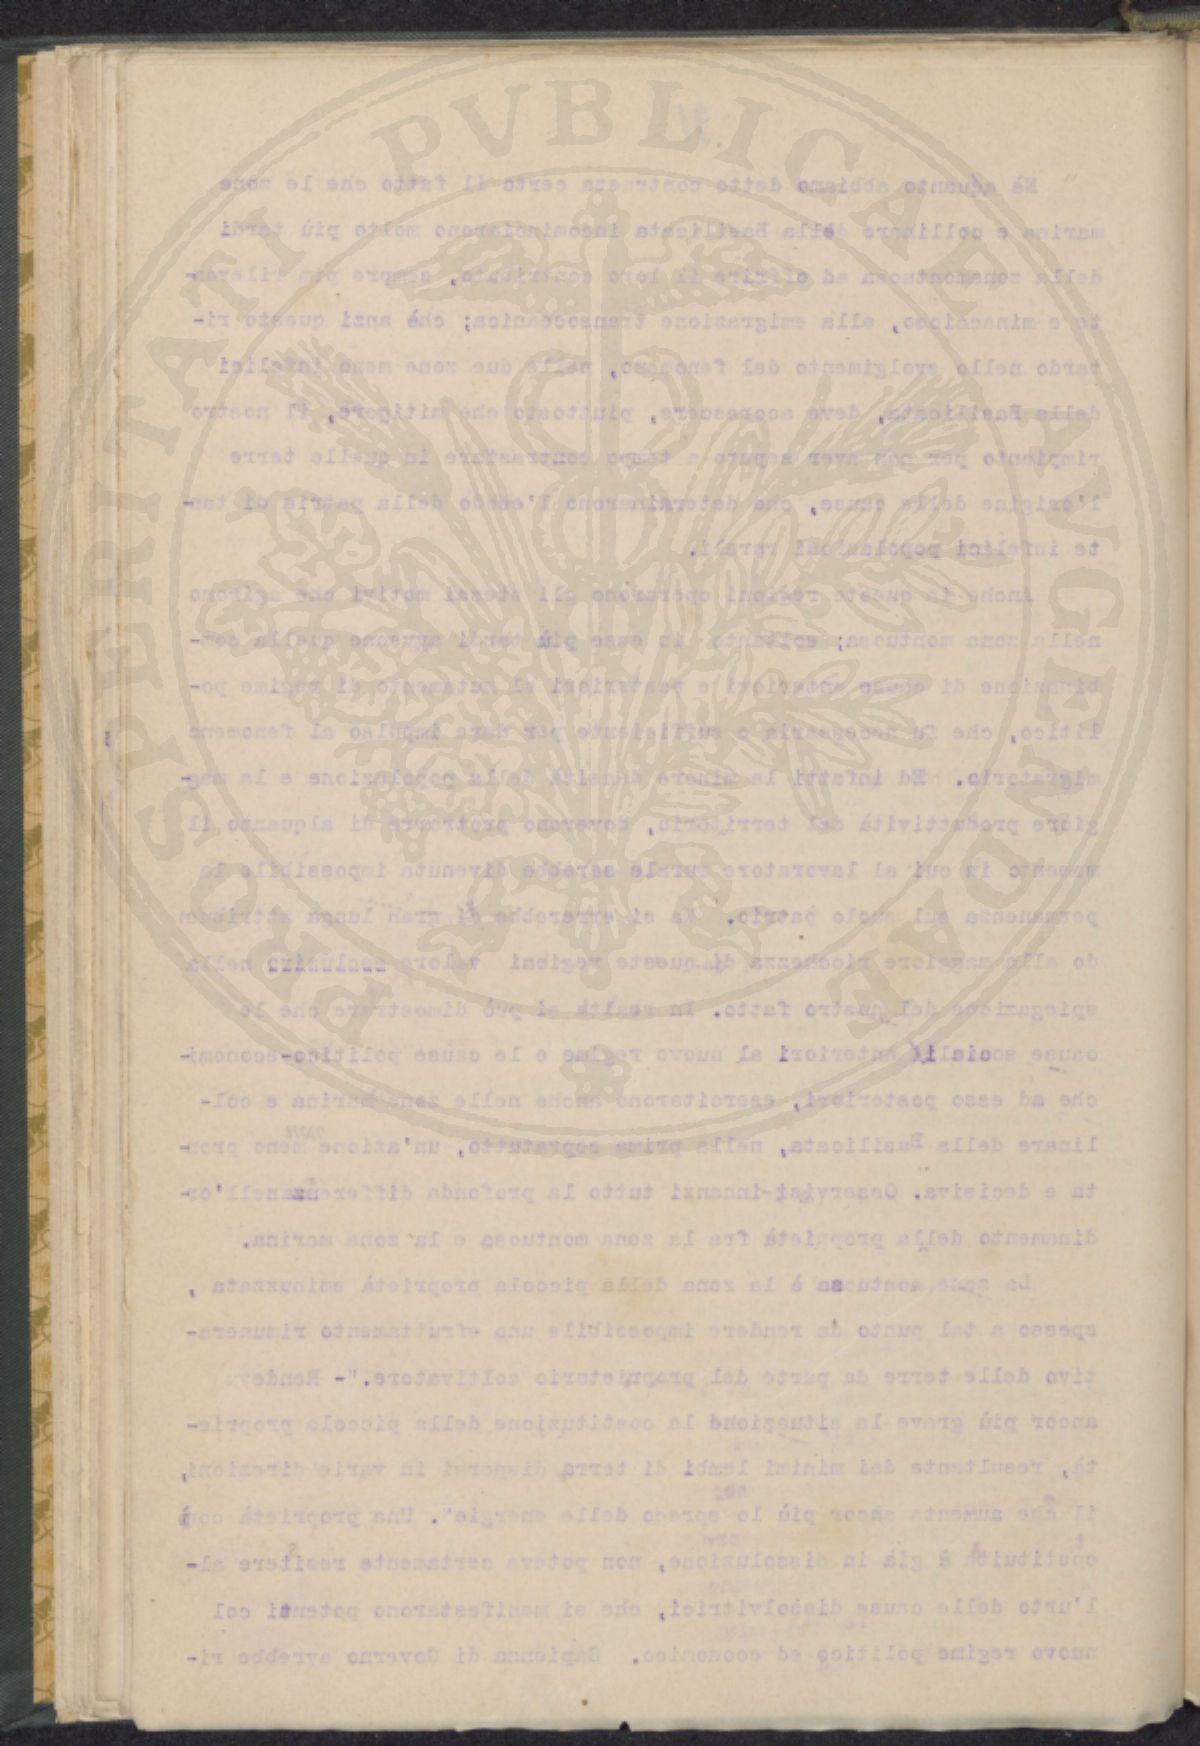 PROSPERITATI PVBLICAE AVGENDAE
Nè quanto abbiamo detto contrasta certo il fatto che le zone
marina e collinare della Basilicata incominciarono molto più tardi
della zonamontuosa ad offrire il loro contributo, sempre più rilevan-
te e minaccioso, alla emigrazione transoceanica; chè anzi questo ri-
tardo nello svolgimento del fenomeno, nelle due zone meno infelici
della Basilicata, deve accrescere, piuttosto che mitigare, il nostro
rimpianto per non aver saputo a tempo contrastare in quelle terre
l'origine delle cause, che determinarono l'esodo della patria di tan-
te infelici popolazioni rurali.
Anche in queste regioni operarono gli stessi motivi che agirono
nella zona montuosa; soltanto in esse più tardi avvenne quella com-
binazione di cause anteriori e posteriori al mutamento di regime po-
litico, che fu necessaria e sufficiente per dare impulso al fenomeno
migratorio. Ed infatti la minore densità della popolazione e la mag-
giore produttività del territorio, dovevano protrarre di alquanto il
momento in cui al lavoratore rurale sarebbe divenuta impossibile la
permanenza sul suolo patrio. Ma si errerebbe di gran lunga attribuen
do alla maggiore ricchezza di queste regioni valore esclusivo nella
spiegazione del nostro fatto. In realtà si può dimostrare che le
cause sociali anteriori al nuovo regime e le cause politico-economi-
che ad esso posteriori, esercitarono anche nelle zone marina e col-
linare della Basilicata, nella prima sopratutto, un'azione meno pron-
ta e decisiva. Osservisi innanzi tutto la profonda differenza nell'or-
dinamento della proprietà fra la zona montuosa e la zona marina.
La zona montuosa è la zona della piccola proprietà sminuzzata ,
spesso a tal punto da rendere impossibile uno sfruttamento rimunera-
tivo delle terre da parte del proprietario coltivatore."- Rendeva
ancor più grave la situazione la costituzione della piccola proprie-
tà, resultante dai minimi lembi di terra dispersi in varie direzioni,
il che aumenta ancor più lo spreco delle energie". Una proprietà così
costituita è già in dissoluzione, non poteva certamente resitere al-
l'urto delle cause dissolvitrici, che si manifestarono potenti col
nuovo regime politico ed economico. Sapienza di Governo avrebbe ri-